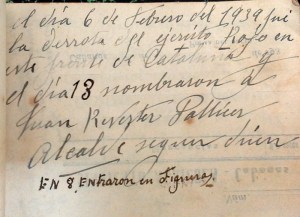 el dia 6 de febrero del 1939 fui
la derrota del ejersito Rojo en
este frente de Cataluña y
el dia 13 nombraron a
Juan Reverter Pallicer
Alcalde segun dicen
EN 8 ENTRARON en Figueras.